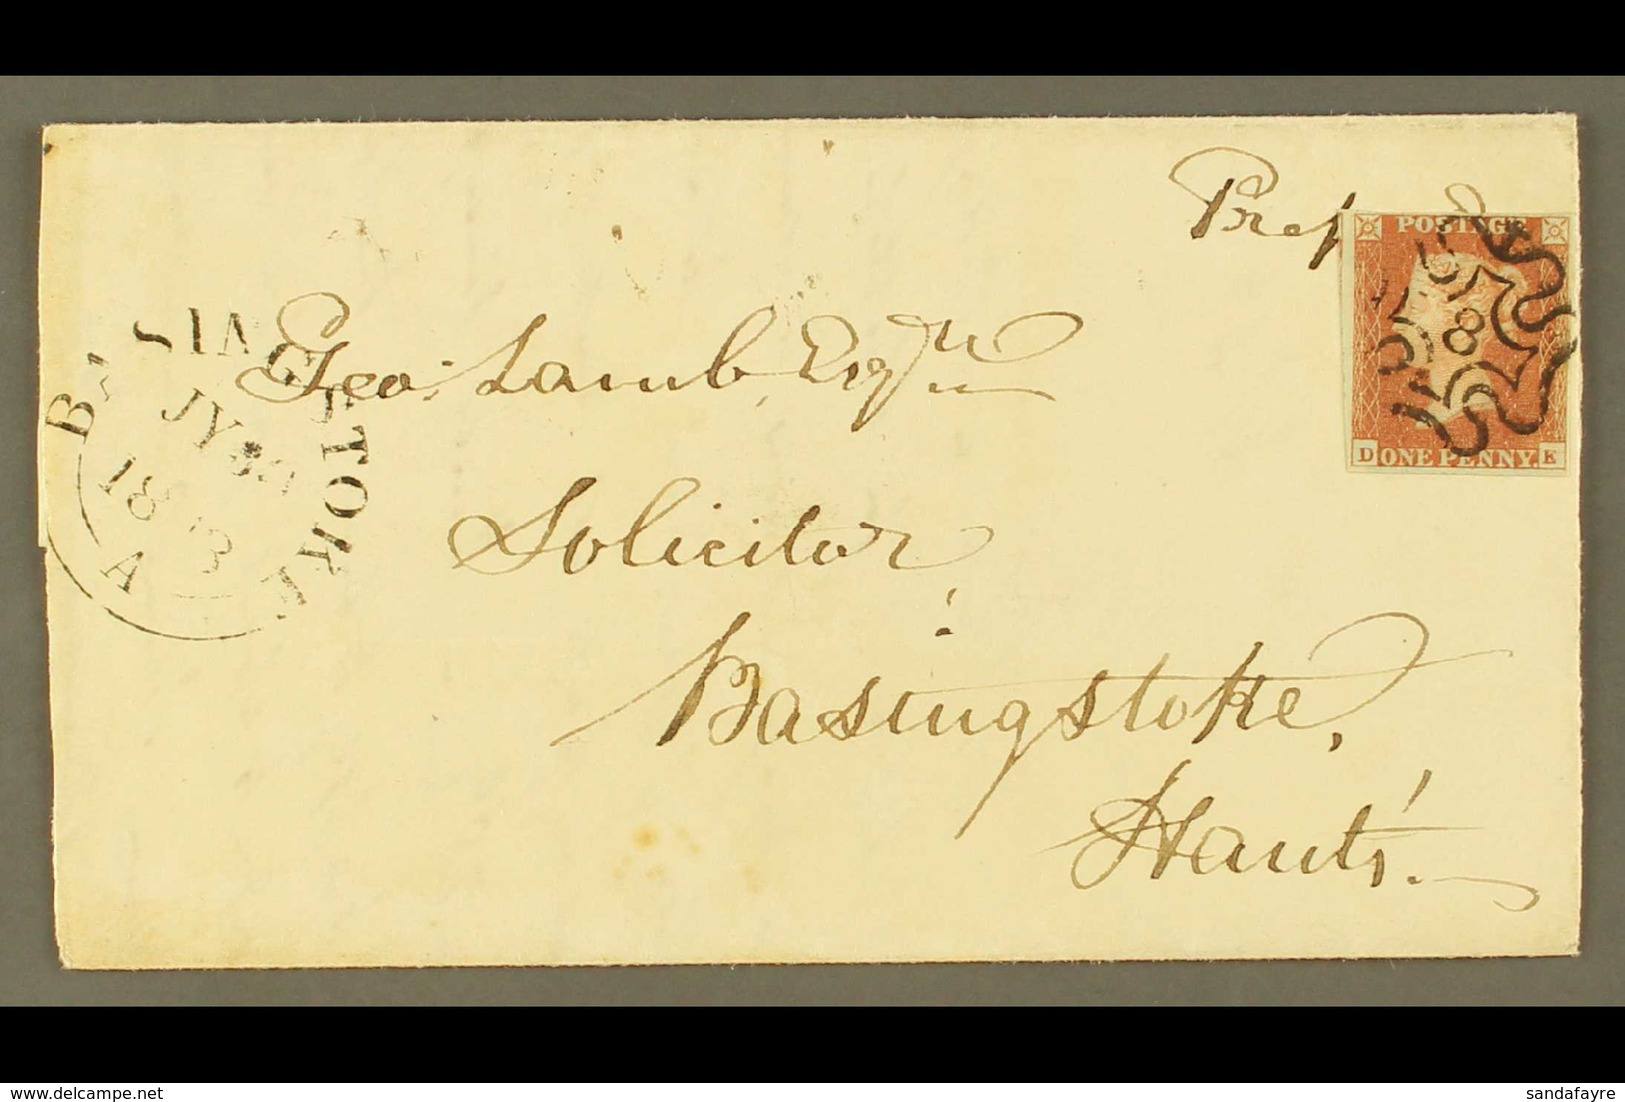 Prep
POSTAGE
8
D ONE PENNY. K
BASINGSTOKE
JY
18 3
A
Geo: Lamb, Esqre
Solicitor
Basingstoke,
Hants.
sandafayre